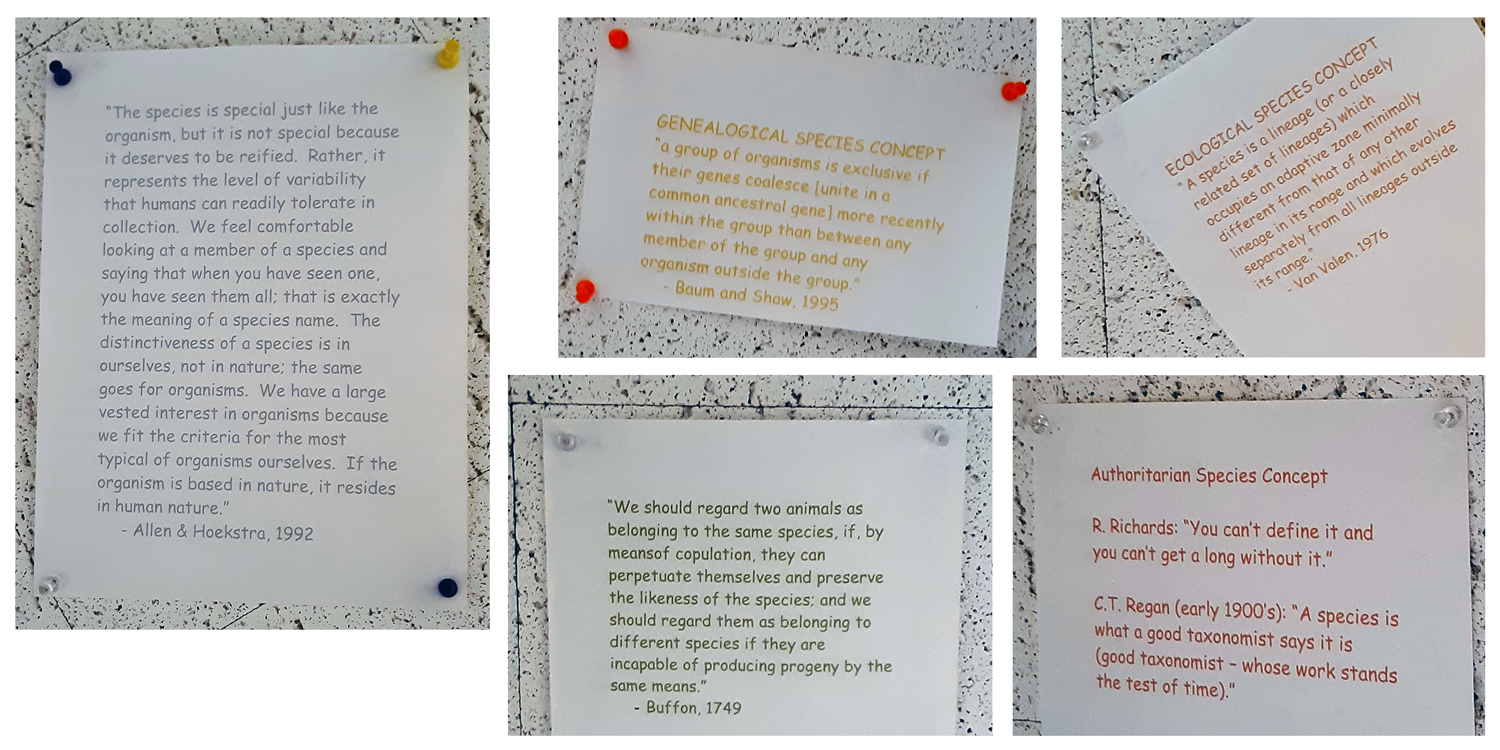 "The species is special just like the
organism, but it is not special because
it deserves to be reified. Rather, it
represents the level of variability
that humans can readily tolerate in
collection. We feel comfortable
looking at a member of a species and
saying that when you have seen one,
you have seen them all; that is exactly
the meaning of a species name. The
distinctiveness of a species is in
ourselves, not in nature; the same
goes for organisms. We have a large
vested interest in organisms because
we fit the criteria for the most
typical of organisms ourselves. If the
organism is based in nature, it resides
in human nature."
- Allen & Hoekstra, 1992
GENEALOGICAL SPECIES CONCEPT
"a group of organisms is exclusive if
their genes coalesce [unite in a
common ancestral gene] more recently
within the group than between any
member of the group and any
organism outside the group."
- Baum and Shaw, 1995
ECOLOGICAL SPECIES CONCEPT
"A species is a lineage (or a closely
related set of lineages) which
occupies an adaptive zone minimally
different from that of any other
lineage in its range and which evolves
separately from all lineages outside
its range."
- Van Valen, 1976
"We should regard two animals as
belonging to the same species, if, by
meansof copulation, they can
perpetuate themselves and preserve
the likeness of the species; and we
should regard them as belonging to
different species if they are
incapable of producing progeny by the
same means."
- Buffon, 1749
Authoritarian Species Concept
R. Richards: "You can't define it and
you can't get a long without it."
C.T. Regan (early 1900's): "A species is
what a good taxonomist says it is
(good taxonomist – whose work stands
the test of time)."